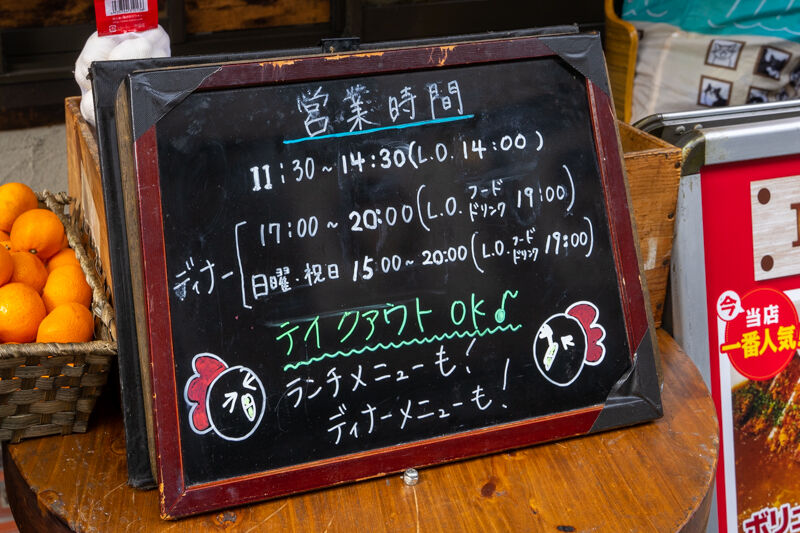 営業時間
11:30~14:30(L.O. 14:00)
ディナー
17:00~20:00(L.O. フード ドリンク 19:00)
日曜・祝日 15:00~20:00(L.O. フード ドリンク 19:00)
テイクアウトOK♪
ランチメニューも!
ディナーメニューも!
今
当店
一番人気!
ボリュ